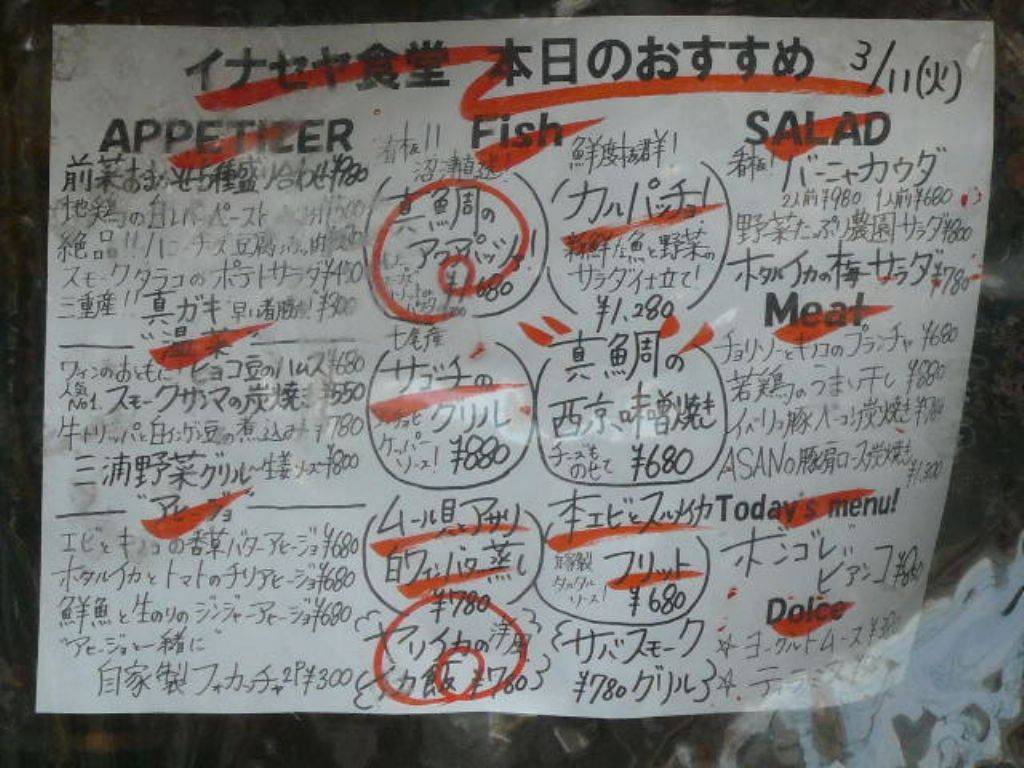 イナセヤ食堂 本日のおすすめ 3/11(火)
APPETIZER
前菜おまかせ5種盛り合わせ¥980
地鶏の白レバーペースト
絶品!!
スモークタラコのポテトサラダ¥450
三重産!!真ガキ 早い者勝ち ¥300
温菜
ワインのおともに ヒヨコ豆のハムス ¥680
人気No1. スモークサンマの炭焼き ¥550
牛トリッパと白インゲン豆の煮込み ¥780
三浦野菜グリル〜生姜ソース ¥800
"アヒージョ"
エビとキノコの香草バターアヒージョ¥680
ホタルイカとトマトのチリアヒージョ¥680
鮮魚と生のりのジンジャーアヒージョ¥680
"アヒージョと一緒に"
自家製フォカッチャ2P ¥300
Fish
看板!!
沼津直送!
真鯛の
アクアパッツァ!
¥1,680
鮮度抜群!
カルパッチョ!
新鮮な魚と野菜の
サラダ仕立て!
¥1,280
七尾産
サヨリの
グリル
ケッパー
ソース!
¥880
真鯛の
西京味噌焼き
チーズも
のせて
¥680
ムール貝とアサリ
白ワインバター蒸し
¥780
本エビとスルメイカ
自家製
タルタル
ソース!
フリット
¥680
ヤリイカの
イカ飯 ¥780
サバスモーク
¥780 グリル
SALAD
看板! バーニャカウダ
2人前¥980 1人前¥680
野菜たっぷり農園サラダ¥800
ホタルイカの梅サラダ¥780
Meat
チョリソーとキノコのプランチャ ¥680
若鶏のうまい干し ¥880
イベリコ豚ベーコン炭焼き¥780
ASANO豚肩ロース炭焼き
¥1,300
Today's menu!
ボンゴレ
ビアンコ
Dolce
☆ ヨーグルトムース
☆